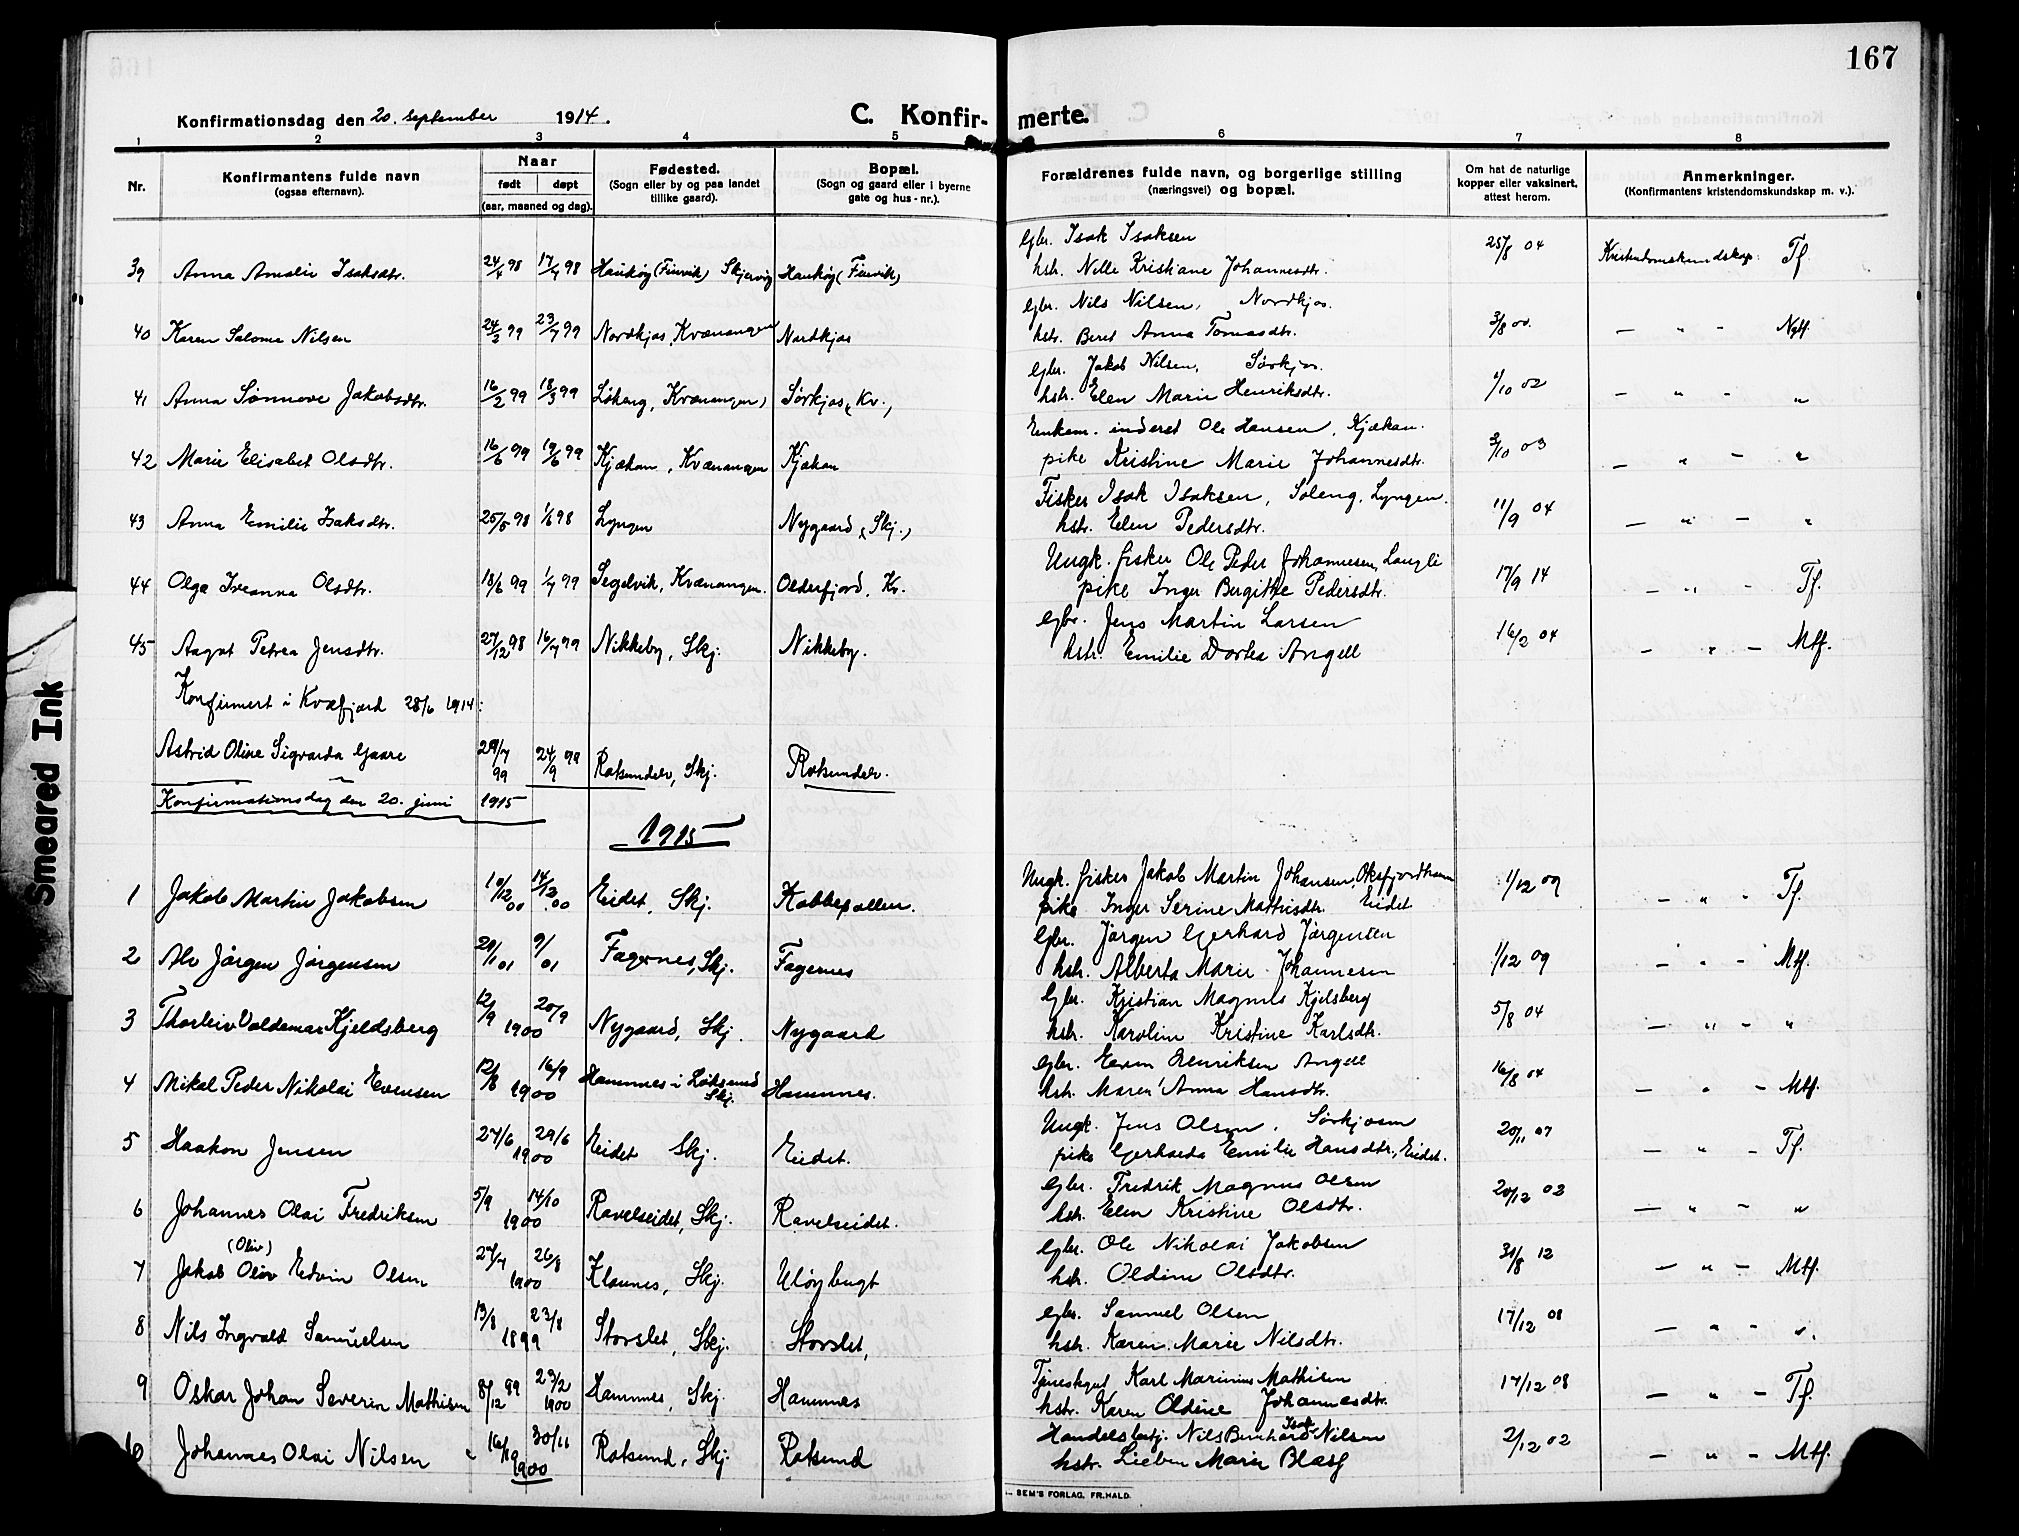 167
Konfirmationsdag den 20. september 1914.
C. Konfir- merte.
1 2 3 4 5 6 7 8
Nr.
Konfirmantens fulde navn
(ogsaa efternavn).
Naar
født døpt
(aar, maaned og dag).
Fødested.
(Sogn eller by og paa landet
tillike gaard).
Bopæl.
(Sogn og gaard eller i byerne
gate og hus-nr.).
Forældrenes fulde navn, og borgerlige stilling
(næringsvei) og bopæl.
Om hat de naturlige
kopper eller vaksinert,
attest herom.
Anmerkninger.
(Konfirmantens kristendomskundskap m. v.).
Gbr. Isak Isaksen
39 Anna Amalie Isaksdtr. 24/4 98 17/7 98 Haukøy (Finvik) Skjervøy Haukøy (Finvik) hstr. Nelle Kristiane Johannesdtr. 25/8 04 Kristendomskundskap: Tf.
Gbr. Nils Nilsen, Nordkjos.
40 Karen Salome Nilsen 24/2 99 23/7 99 Nordkjos, Kvænangen Nordkjos hstr. Beret Anna Tomasdtr. 3/8 00. — " - Ngtf.
Gbr. Jakob Nilsen, Sørkjos.
41 Anna Sønnove Jakobsdtr. 16/2 99 18/3 99 Kvænangen) Sørkjos, Kv., hstr. Elen Marie Henriksdtr. /10 02 — " - "
Enkem. inderst Ole Hansen, Kjækan.
42 Marie Elisabet Olsdtr. 16/6 99 19/6 99 Kjækan, Kvænangen Kjækan pike Kristine Marie Johannesdtr. 2/10 03 — " — "
Fisker Isak Isaksen, Soleng, Lyngen.
43 Anna Emilie Isaksdtr. 25/5 98 1/6 98 Lyngen Nygaard (Skj.) hstr. Elen Pedersdtr. 11/9 04 — " — "
Ungk. fisker Ole Peder Johannesen, Langli
44 Olga Iveanna Olsdtr. 18/6 99 1/7 99 Segelvik, Kvænangen. Olderfjord, Kv. pike Inger Bergitte Pedersdtr. 17/9 14 — " - Tf.
Gbr. Jens Martin Larsen
45 Aagot Petrea Jensdtr. 27/12 98 16/7 99 Nikkeby, Skj. Nikkeby. hstr. Emilie Dortea Angell 16/2 04 — " — Mtf.
Konfirmert i Kvæfjord 28/6 1914:
Astrid Oline Sigvarda Gaare 29/7 99 24/9 99 Rotsundelv, Skj. Rotsundelv.
Konfirmationsdag den 20. juni 1915
1915
Ungk. fisker Jakob Martin Johansen, Oksfjordhamn
1 Jakob Martin Jakobsen 10/12 00 14/12 00 Eidet, Skj. Kobbepollen. pike Inger Serine Mathisdtr. Eidet 1/12 09 — " - Tf.
Gbr. Jørgen Gerhard Jørgensen
2 Alv Jørgen Jørgensen 29/1 01 9/ 01 Fagernes, Skj. Fagernes hstr. Alberta Marie Johannesen 1/12 09 — " - Mtf.
Gbr. Kristian Magnus Kjelsberg
3 Thorleiv Valdemar Kjeldsberg 12/9 20/9 1900 Nygaard, Skj. Nygaard hstr. Karoline Kristine Karlsdtr. 5/8 04 — " — "
Gbr. Even Henriksen Angell
4 Mikal Peder Nikolai Evensen 12/8 16/9 1900 Hamnes i Skj. Hamnes. hstr. Maren Anna Hansdtr. 16/8 04 — " — Mtf.
Ungk. Jens Olsen, Sørkjosen
5 Haakon Jensen 27/6 29/6 1900 Eidet Skj. Eidet. pike Gerharda Emilie Hansdtr., Eidet. 20/11 07 — " - Tf.
Gbr. Fredrik Magnus Olsen
6 Johannes Olai Fredriksen 5/9 14/10 1900 Ravelseidet, Skj. Ravelseidet. hstr. Elen Kristine Olsdtr. 20/12 02 — " - "
(Oliv) Gbr. Ole Nikolai Jakobsen
7 Jakob Oliv Edvin Olsen 27/7 26/8 1900 Klaunes, Skj. Uløybugt hstr. Oldine Olsdtr. 31/8 12 — " — Mtf.
Gbr. Samuel Olsen
8 Nils Ingvald Samuelsen 13/8 23/8 1899 Storslet, Skj. Storslet, hstr. Karen Marie Nilsdtr. 17/12 08 — " - "
Tjenestegut Karl Marinius Mathisen
9 Oskar Johan Severin Mathisen 8/12 99 23/2 1900 Hamnes, Skj. Hamnes hstr. Karen Oldine Johannesdtr. 17/12 08 — " - Tf.
Handelsbetj. Nils Bernhard Isak Nilsen
10 Johannes Olai Nilsen 16/9 30/11 1900 Rotsund, Skj. Rotsund hstr. Marie 2/12 02 — " - Mtf.
SEM'S FORLAG, FR.HALD.
Smeared Ink